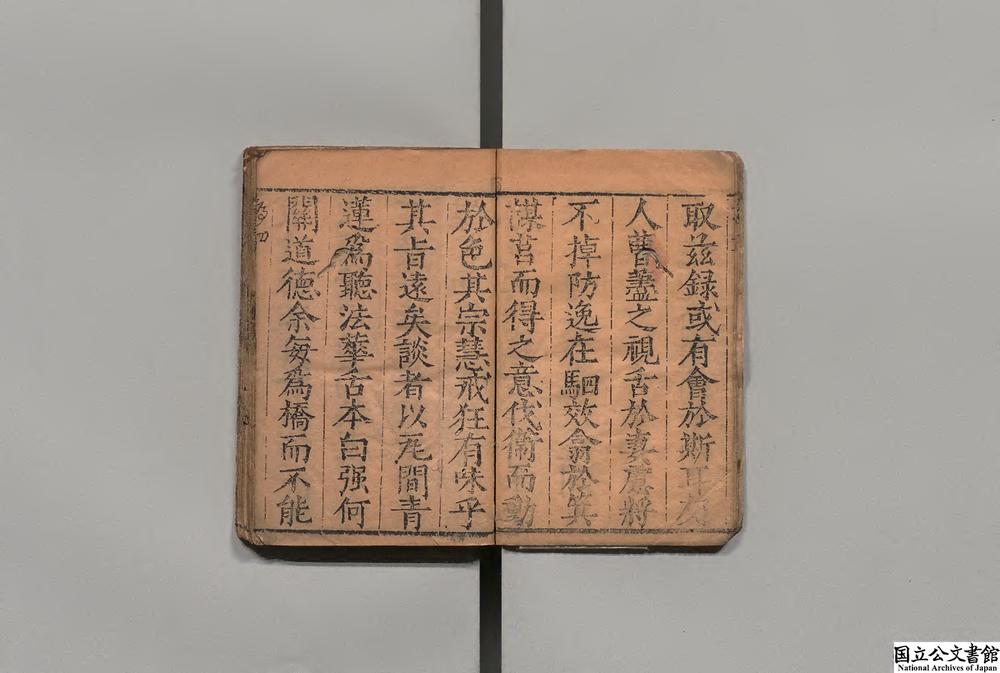 取茲録或有會於斯耳
人瞢蓋之視舌於妻廣將
不掉防逸在駟效翕於箕
謀莒而得之意伐衞而動
於色其宗慧戒狂有味乎
其旨遠矣談者以死間青
蓮為聽法華舌本曰强何
關道德余每爲橋而不能
国立公文書館
National Archives of Japan